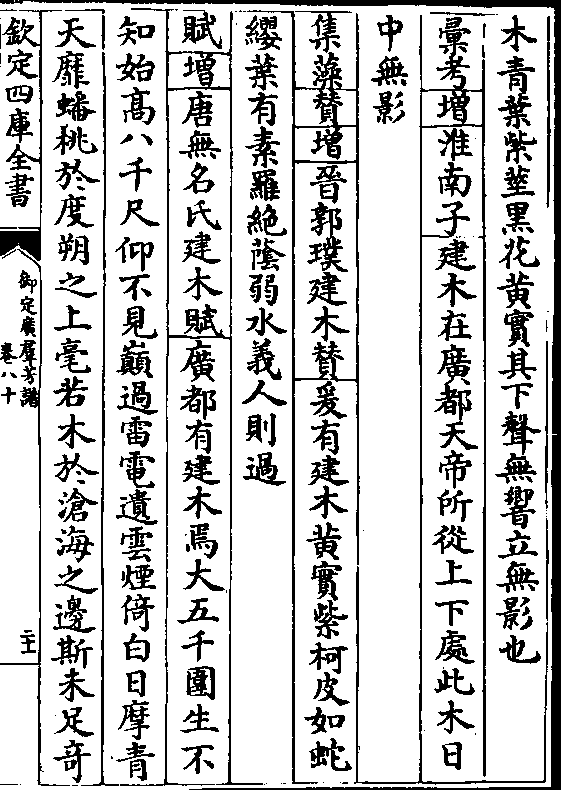 木青葉紫莖黒花黄實其下聲無響立無影也
彚考增淮南子建木在廣都天帝所從上下處此木日
中無影
集藻贊增晉郭璞建木贊爰有建木黄實紫柯皮如蛇
纓葉有素羅絶蔭弱水義人則過
賦增唐無名氏建木賦廣都有建木焉大五千圍生不
知始髙八千尺仰不見巔過雷電遺雲煙倚白日摩青
天靡蟠桃於度朔之上毫若木於滄海之邊斯未足竒
欽定四庫全書
御定廣羣芳譜
卷八十
二十一